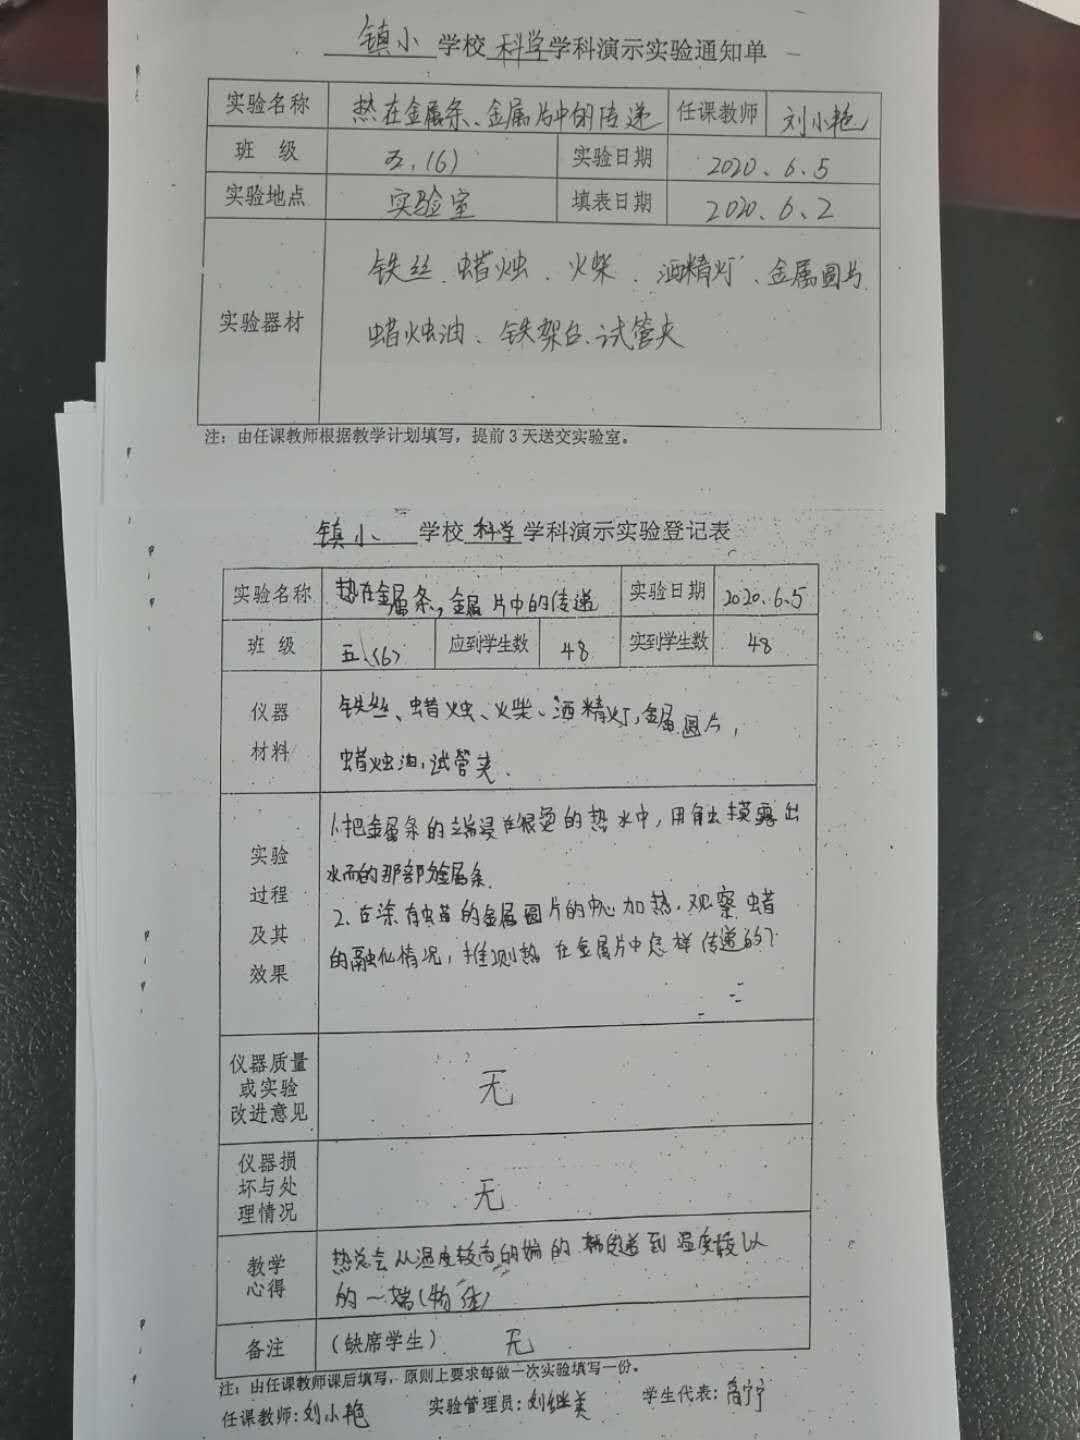 镇小 学校 科学 学科演示实验通知单
实验名称 热在金属条、金属片中的传递 任课教师 刘小艳
班 级 五.(6) 实验日期 2020.6.5
实验地点 实验室 填表日期 2020.6.2
实验器材
铁丝、蜡烛、火柴、酒精灯、金属圆片
蜡烛油、铁架台、试管夹
注：由任课教师根据教学计划填写，提前3天送交实验室。
镇小 学校 科学 学科演示实验登记表
实验名称 热在金属条，金属片中的传递 实验日期 2020.6.5
班 级 五.(6) 应到学生数 48 实到学生数 48
仪器
材料
铁丝、蜡烛、火柴、酒精灯，金属圆片，
蜡烛油，试管夹.
实验
过程
及其
效果
1.把金属条的一端浸在很烫的热水中，用手去摸露出
水面的那部分金属条.
2.在涂有蜡的金属圆片的中心加热.观察蜡
的融化情况，推测热在金属片中怎样传递的?
仪器质量
或实验
改进意见
无
仪器损
坏与处
理情况
无
教学
心得
热总会从温度较高的一端传递到温度较低
的一端(物体)
备注 (缺席学生) 无
注：由任课教师课后填写，原则上要求每做一次实验填写一份。
任课教师：刘小艳 实验管理员：刘继美 学生代表：